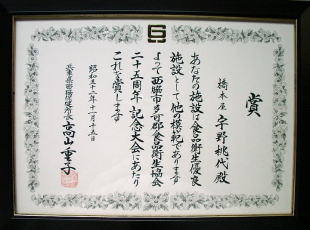 賞
橋本屋 宇野桃代殿
あなたの施設は食品衛生優良
施設として他の模範であります
よって西脇市多可郡食品衛生協会
二十五周年記念大会にあたり
これを賞します
昭和五十二年十一月十五日
兵庫県西脇保健所長
高山重子